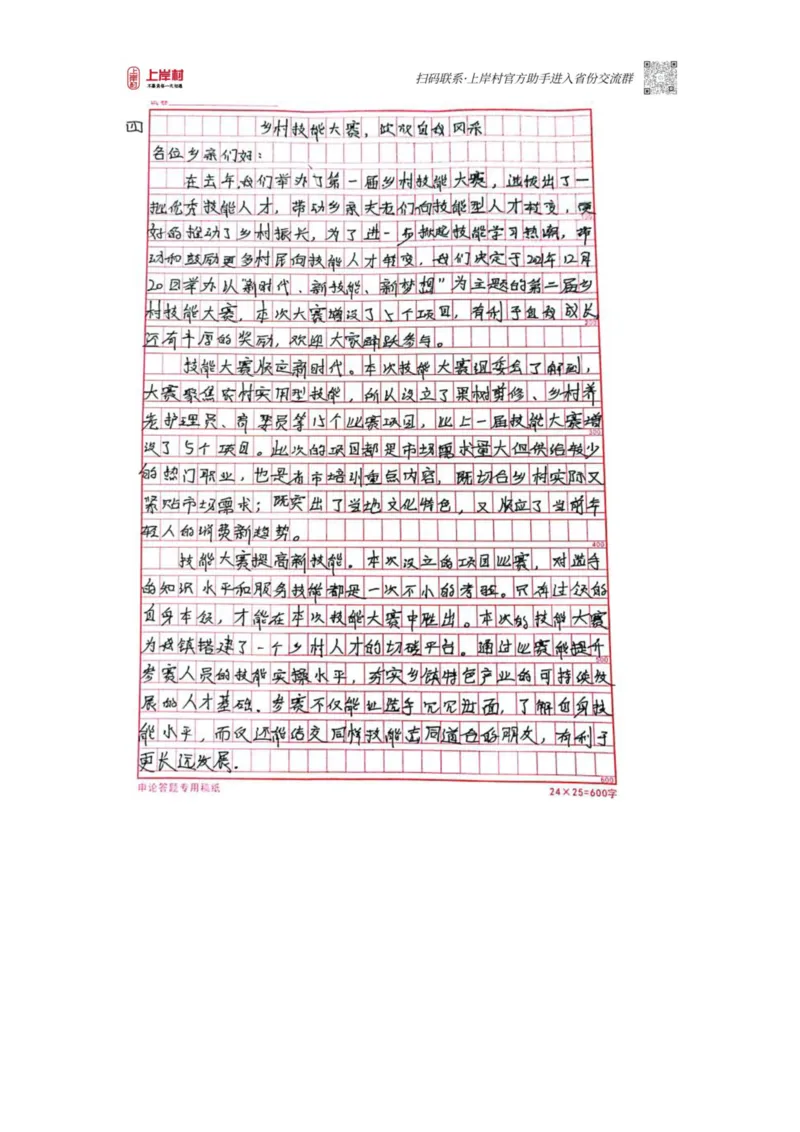 上岸村
扫码联系·上岸村官方助手进入省份交流群
四 乡村技能大赛，绽放自我风采
各位乡亲们好：
在去年，我们举办了第一届乡村技能大赛，选拔出了一
批优秀技能人才，带动乡亲父老们向技能型人才转变，更
好的推动了乡村振兴，为了进一步掀起技能学习热潮，带
动和鼓励更多村民向技能人才转变，我们决定于2021年12月
20日举办以“新时代、新技能、新梦想”为主题的第二届乡
村技能大赛，本次大赛增设了5个项目，有利于自我成长
200
还有丰厚的奖励，欢迎大家踊跃参与。
技能大赛顺应新时代。本次技能大赛组委会了解到，
大赛聚焦农村实用型技能，所以设立了果树剪修、乡村养
老护理员、育婴员等15个比赛项目，比上一届技能大赛增
300
设了5个项目。此次的项目都是市场需求量大但供给较少
的热门职业，也是省市培训重点内容，既切合乡村实际又
紧贴市场需求；既突出了当地文化特色，又顺应了当前年
轻人的消费新趋势。
400
技能大赛提高新技能。本次设立的项目比赛，对选手
的知识水平和服务技能都是一次不小的考验。只有过硬的
自身本领，才能在本次技能大赛中胜出。本次的技能大赛
为我镇搭建了一个乡村人才的切磋平台。通过比赛能提升
500
参赛人员的技能实操水平，夯实乡镇特色产业的可持续发
展的人才基础。参赛不仅能让选手见见世面，了解自身技
能水平，而且还能结交同样技能志同道合的朋友，有利于
更长远发展。
600
申论答题专用稿纸
24×25=600字